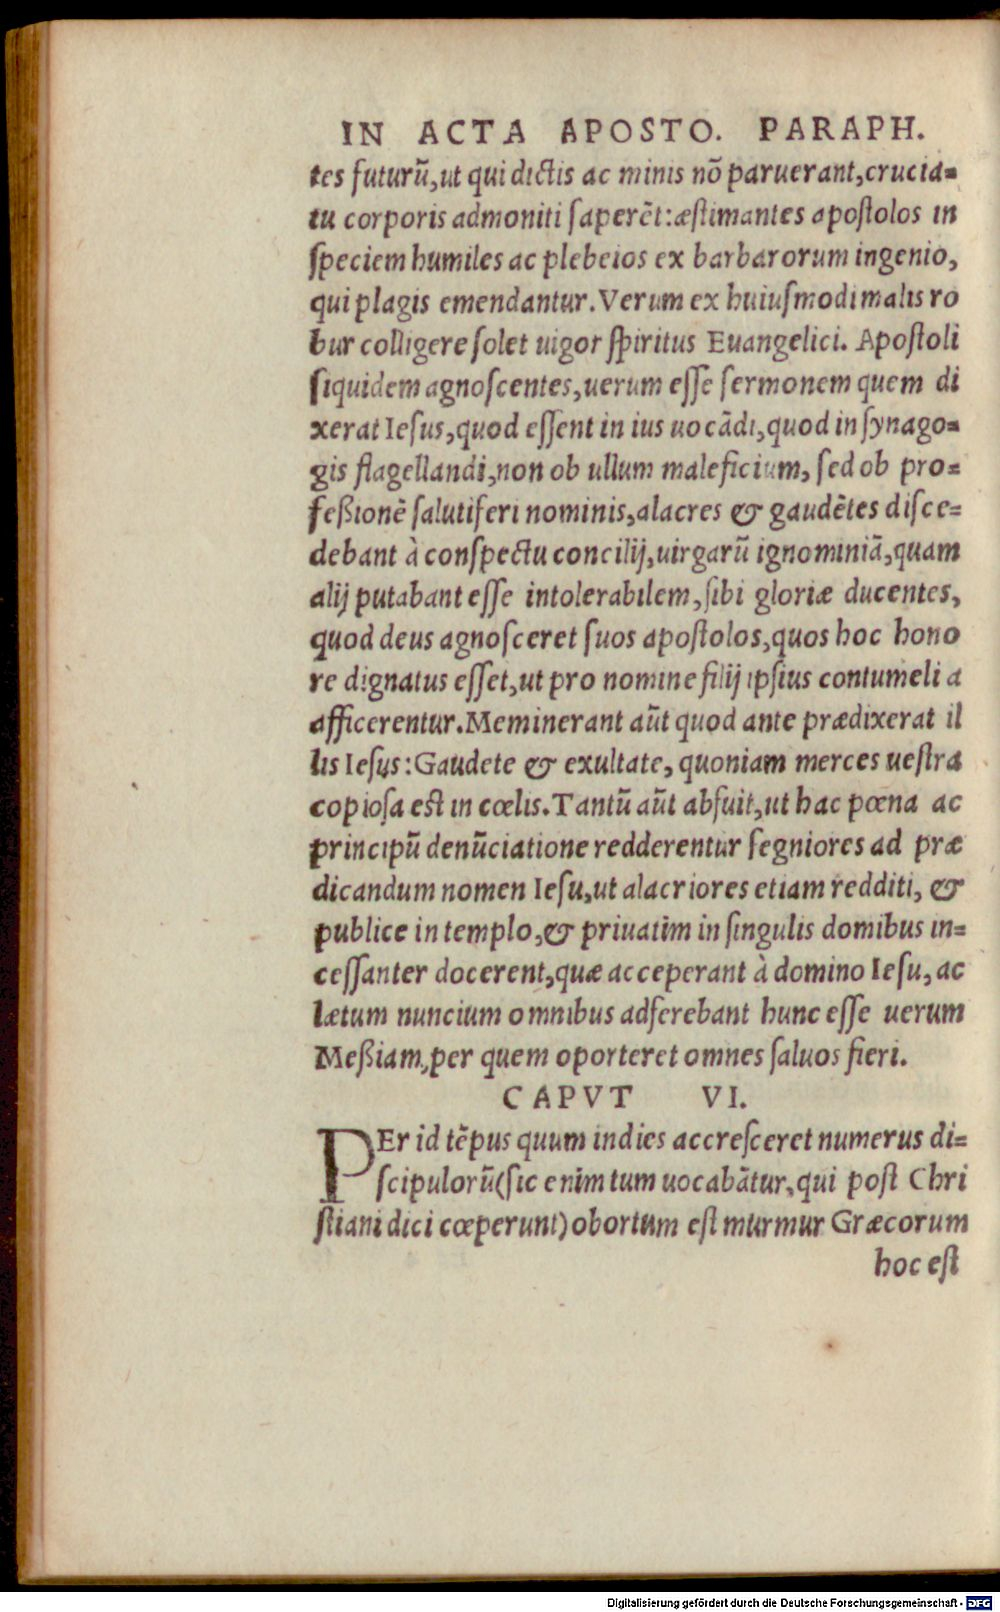 IN ACTA APOSTO. PARAPH.
tes futurũ,ut qui dictis ac minis nõ paruerant,crucia=
tu corporis admoniti saperẽt:æstimantes apostolos in
speciem humiles ac plebeios ex barbarorum ingenio,
qui plagis emendantur.Verum ex huiusmodi malis ro
bur colligere solet uigor spiritus Euangelici. Apostoli
siquidem agnoscentes,uerum esse sermonem quem di
xerat Iesus,quod essent in ius uocãdi,quod in synago=
gis flagellandi,non ob ullum maleficium, sed ob pro=
feßionẽ salutiferi nominis,alacres & gaudẽtes disce=
debant à conspectu concilij,uirgarũ ignominiã,quam
alij putabant esse intolerabilem,sibi gloriæ ducentes,
quod deus agnosceret suos apostolos,quos hoc hono
re dignatus esset,ut pro nomine filij ipsius contumelia
afficerentur.Meminerant aũt quod ante prædixerat il
lis Iesus:Gaudete & exultate, quoniam merces uestra
copiosa est in cœlis.Tantũ aũt absuit,ut hac pœna ac
principũ denũciatione redderentur segniores ad præ
dicandum nomen Iesu,ut alacriores etiam redditi, &
publice in templo,& priuatim in singulis domibus in=
cessanter docerent,quæ acceperant à domino Iesu, ac
lætum nuncium omnibus adferebant hunc esse uerum
Meßiam,per quem oporteret omnes saluos fieri.
CAPVT VI.
PEr id tẽpus quum indies accresceret numerus di=
scipulorũ(sic enim tum uocabãtur,qui post Chri
stiani dici cœperunt)obortum est murmur Græcorum
hoc est
Digitalisierung gefördert durch die Deutsche Forschungsgemeinschaft - DFG